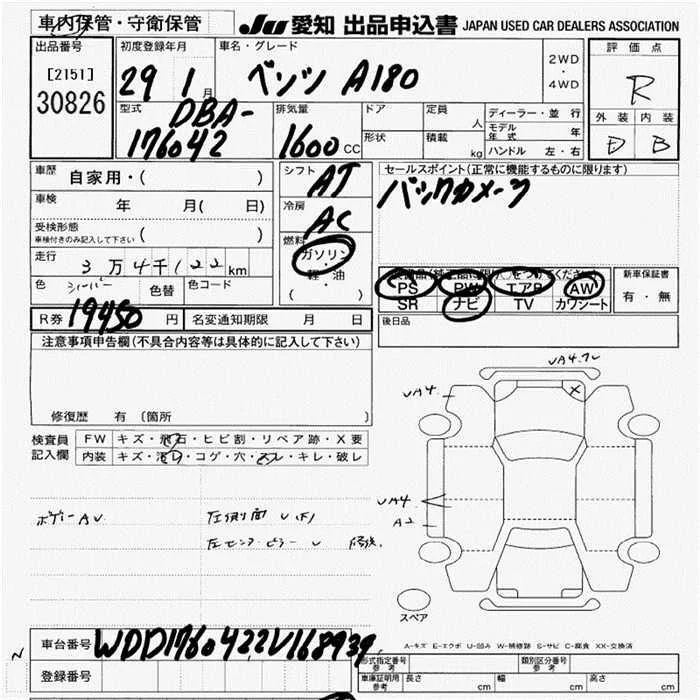 車内保管・守衛保管 JU 愛知 出品申込書 JAPAN USED CAR DEALERS ASSOCIATION
出品番号 初度登録年月 車名・グレード 評価点
[2151] 29 1月 ベンツ A180 2WD・4WD R
30826
型式 DBA- 排気量 ドア 定員 人 ディーラー・並行 外装 内装
176042 1600cc 形状 積載 kg モデル年式 年 D B
ハンドル 左・右
車歴 自家用・( ) シフト AT セールスポイント(正常に機能するものに限ります)
車検 年 月( 日) 冷房 AC バックカメラ
受検形態
車検付きのみ記入して下さい ( ) 燃料 ガソリン・軽油 ( )
走行 3万4千122km
色 シルバー 色替 色コード PS PW エアB AW 新車保証書
SR ナビ TV カワシート 有・無
R券 19450円 名変通知期限 月 日 後日品
注意事項申告欄(不具合内容等は具体的に記入して下さい)
修復歴 有 〔箇所
UA4
検査員記入欄 FW キズ・飛石・ヒビ割・リペア跡・X要
内装 キズ・汚レ・コゲ・穴・スレ・キレ・破レ
UA4
A2
ボデーAU 左側面U(下)
左センターピラーU
スペア
A-キズ E-エクボ U-凹み W-補修跡 S-サビ C-腐食 XX-交換済
車台番号 WDD1760422V168939
型式指定番号 参考 類別区分番号 参考
N
登録番号 車庫証明用 参考 長さ cm 幅 cm 高さ cm